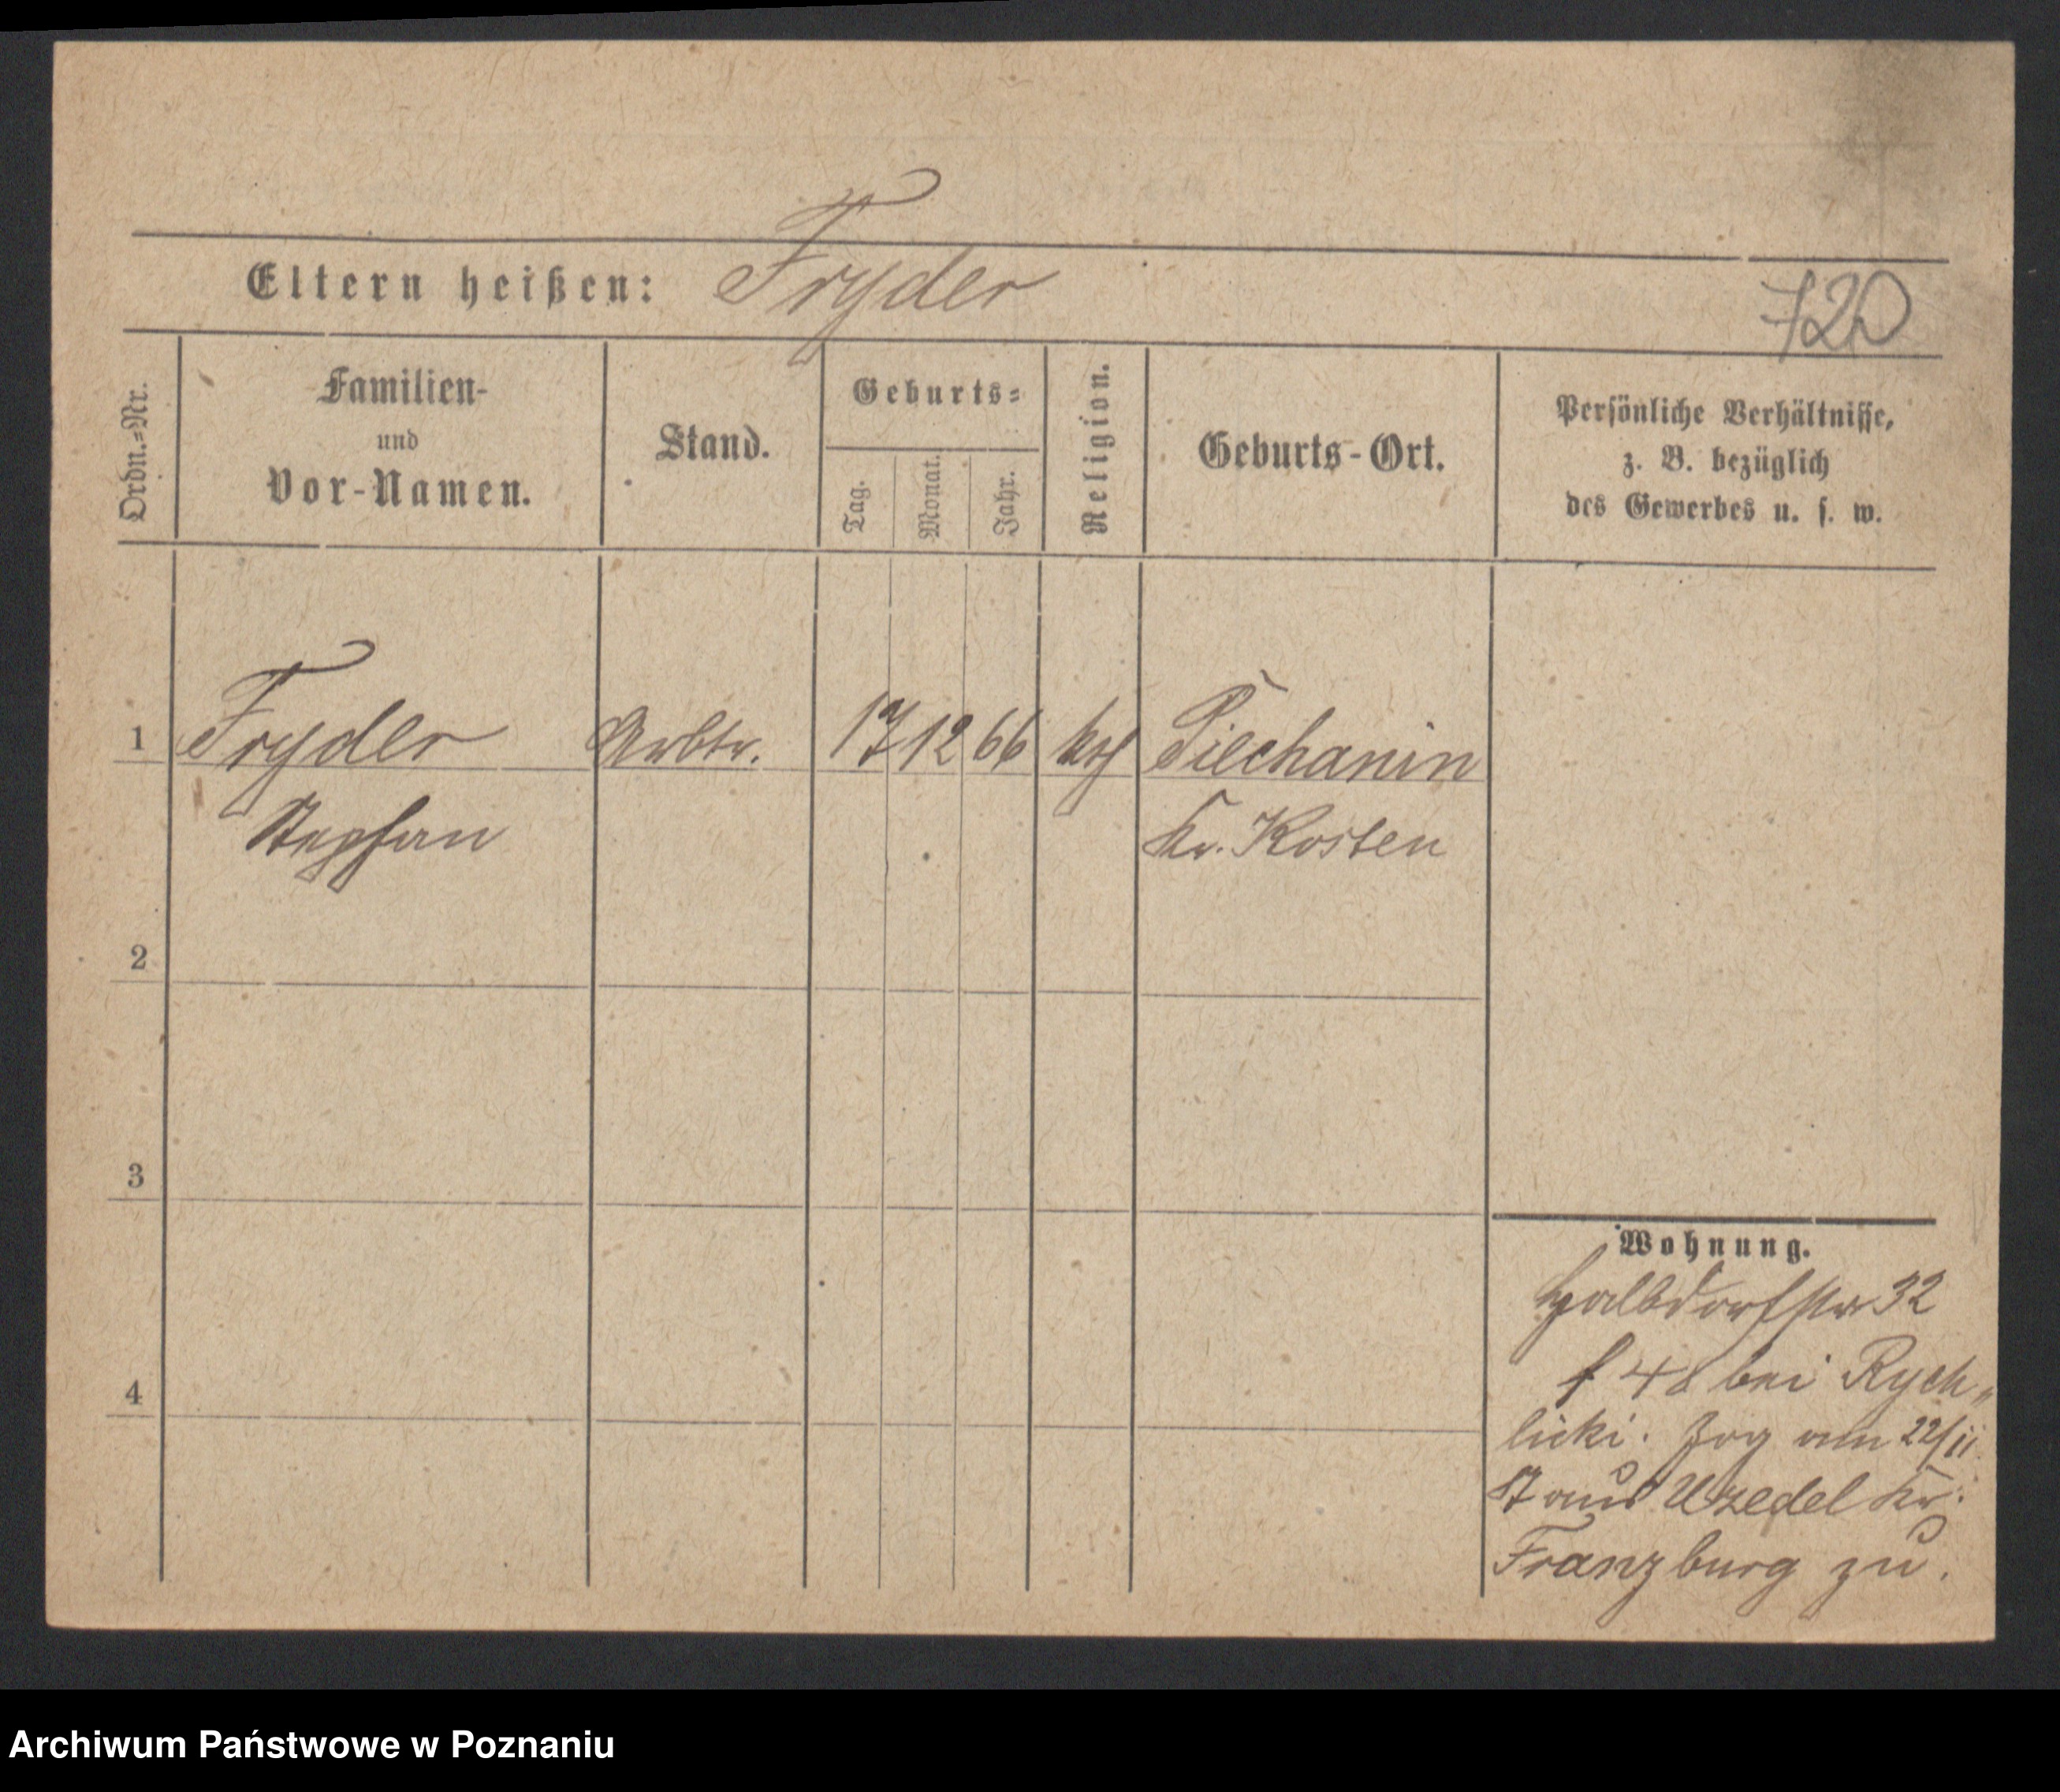 Eltern heißen: Fryder
720
Ordn.=Nr.
Familien-
und
Vor-Namen.
Stand.
Geburts=
Tag.
Monat.
Jahr.
Religion.
Geburts-Ort.
Persönliche Verhältnisse,
z. B. bezüglich
des Gewerbes u. s. w.
1 Fryder Arbtr. 17 12 66 kth Piechanin
Stephan Kr. Kosten
2
3
4
Wohnung.
Halbdorfstr 32
f 48 bei Rych„
licki. Zog am 22/11.
87 aus Uzedel Kr.
Franzburg zu.
Archiwum Państwowe w Poznaniu